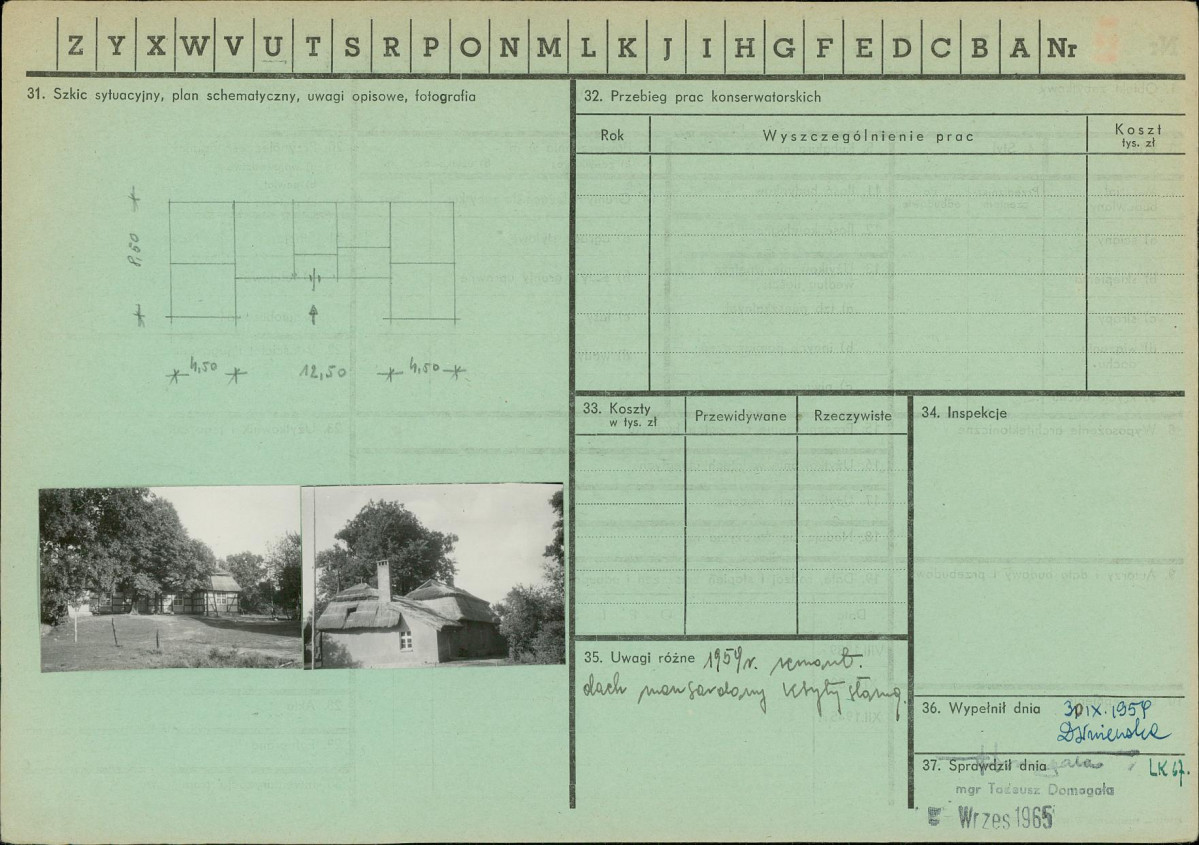 Z Y X W V U T S R P O N M L K J I H G F E D C B A Nr
31. Szkic sytuacyjny, plan schematyczny, uwagi opisowe, fotografia
8,50
4,50 12,50 4,50
32. Przebieg prac konserwatorskich
Rok Wyszczególnienie prac Koszt
tys. zł
33. Koszty
w tys. zł
Przewidywane Rzeczywiste
34. Inspekcje
35. Uwagi różne 1959r. remont.
dach mansardowy kryty słomą.
36. Wypełnił dnia IX.1959
37. Sprawdził dnia LK 67.
mgr Tadeusz Domagała
Wrzes 1965